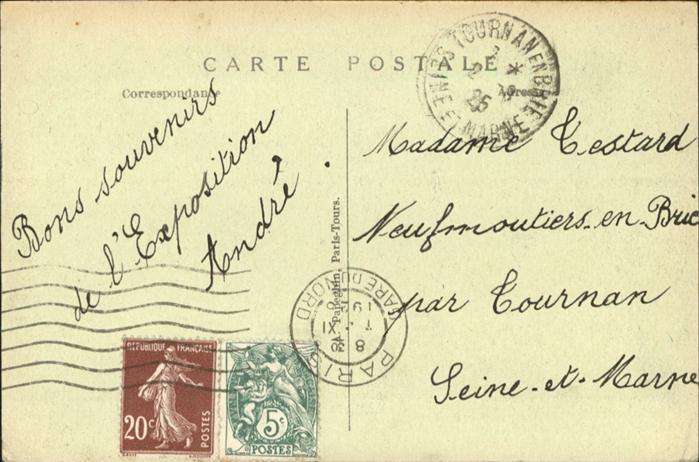 CARTE POSTALE
Correspondance
Adresse
Bons souvenirs
de l'Exposition
André.
Madame Testard
Neufmoutiers-en-Brie
par Tournan
Seine-et-Marne
Papeghin, Paris-Tours.
TOURNAN EN BRIE
SEINE ET MARNE
PARIS
GARE DU NORD
RÉPUBLIQUE FRANÇAISE
20c
POSTES
5c
POSTES